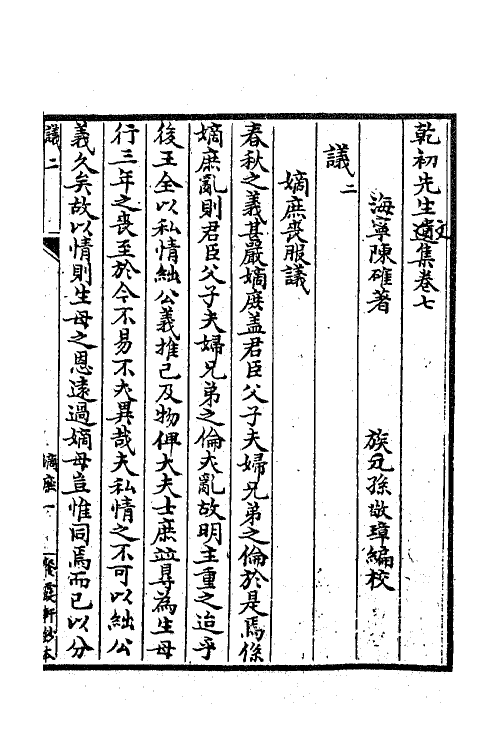 乾初先生遺文集卷七
海寧陳確著　族元孫敬璋編校
議二
嫡庶喪服議
春秋之義甚嚴嫡庶盖君臣父子夫婦兄弟之倫於是焉係
嫡庶亂則君臣父子夫婦兄弟之倫大亂故明主重之迨乎
後王全以私情絀公義推己及物俾大夫士庶並得為生母
行三年之喪至於今不易不大異哉夫私情之不可以絀公
義久矣故以情則生母之恩遠過嫡母豈惟同焉而已以分
議二　嫡庶一　餐霞軒鈔本